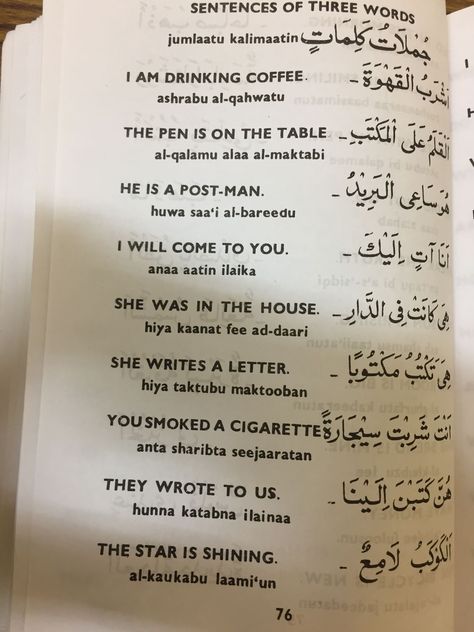 SENTENCES OF THREE WORDS
jumlaatu kalimaatin جُمْلَاتُ كَلِمَاتٍ
I AM DRINKING COFFEE. – اَشْرَبُ الْقَهْوَةَ
ashrabu al-qahwatu
THE PEN IS ON THE TABLE – اَلْقَلَمُ عَلَى الْمَكْتَبِ
al-qalamu alaa al-maktabi
HE IS A POST-MAN. – هُوَ سَاعِى الْبَرِيْدُ
huwa saa‘i al-bareedu
I WILL COME TO YOU. – اَنَا آتٍ اِلَيْكَ
anaa aatin ilaika
SHE WAS IN THE HOUSE. – هِىَ كَانَتْ فِى الدَّارِ
hiya kaanat fee ad-daari
SHE WRITES A LETTER. – هِىَ تَكْتُبُ مَكْتُوبًا
hiya taktubu maktooban
YOU SMOKED A CIGARETTE اَنْتَ شَرِبْتَ سِيْجَارَةً
anta sharibta seejaaratan
THEY WROTE TO US. – هُنَّ كَتَبْنَ اِلَيْنَا
hunna katabna ilainaa
THE STAR IS SHINING. – اَلْكَوْكَبُ لَامِعٌ
al-kaukabu laami‘un
76